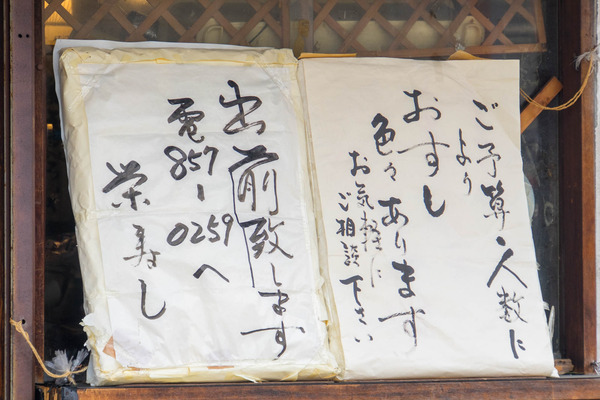 ご予算・人数に
より
おすし
色々あります
お気軽に
ご相談下さい
出前致します
電857-0259へ
栄寿し